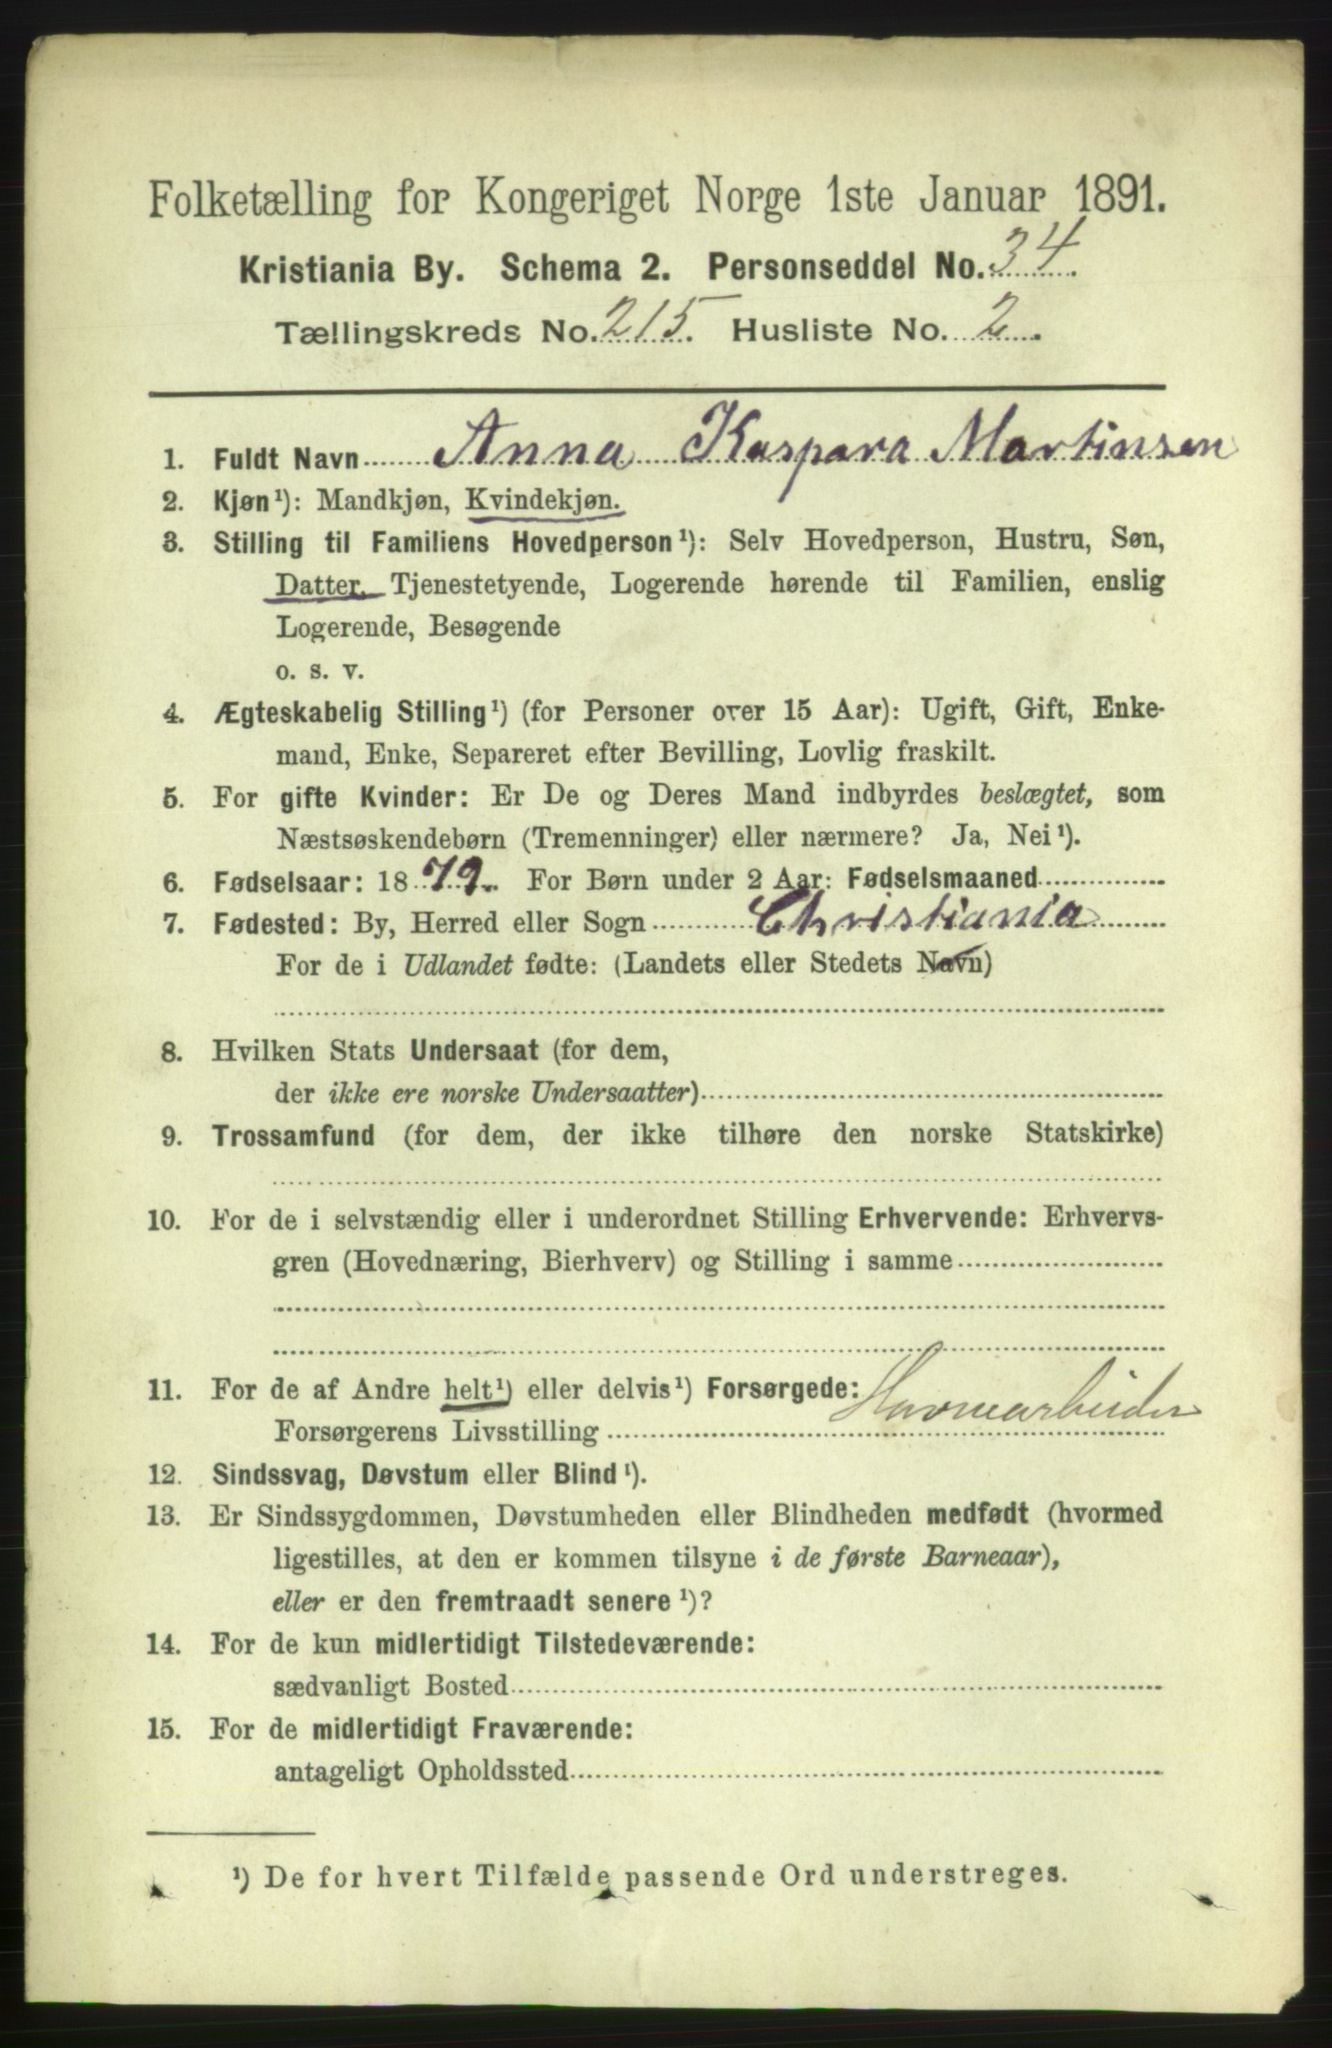 Folketælling for Kongeriget Norge 1ste Januar 1891.
Kristiania By. Schema 2. Personseddel No. 34.
Tællingskreds No. 215. Husliste No. 2.
1. Fuldt Navn Anna Kaspara Martinsen
2. Kjøn¹): Mandkjøn, Kvindekjøn.
3. Stilling til Familiens Hovedperson¹): Selv Hovedperson, Hustru, Søn,
Datter, Tjenestetyende, Logerende hørende til Familien, enslig
Logerende, Besøgende
o. s. v.
4. Ægteskabelig Stilling¹) (for Personer over 15 Aar): Ugift, Gift, Enke-
mand, Enke, Separeret efter Bevilling, Lovlig fraskilt.
5. For gifte Kvinder: Er De og Deres Mand indbyrdes beslægtet, som
Næstsøskendebørn (Tremenninger) eller nærmere? Ja, Nei¹).
6. Fødselsaar: 1879. For Børn under 2 Aar: Fødselsmaaned
7. Fødested: By, Herred eller Sogn Christiania
For de i Udlandet fødte: (Landets eller Stedets Navn)
8. Hvilken Stats Undersaat (for dem,
der ikke ere norske Undersaatter)
9. Trossamfund (for dem, der ikke tilhøre den norske Statskirke)
10. For de i selvstændig eller i underordnet Stilling Erhvervende: Erhvervs-
gren (Hovednæring, Bierhverv) og Stilling i samme
11. For de af Andre helt¹) eller delvis¹) Forsørgede:
Forsørgerens Livsstilling Havnearbeider
12. Sindssvag, Døvstum eller Blind¹).
13. Er Sindssygdommen, Døvstumheden eller Blindheden medfødt (hvormed
ligestilles, at den er kommen tilsyne i de første Barneaar),
eller er den fremtraadt senere¹)?
14. For de kun midlertidigt Tilstedeværende:
sædvanligt Bosted
15. For de midlertidigt Fraværende:
antageligt Opholdssted
¹) De for hvert Tilfælde passende Ord understreges.